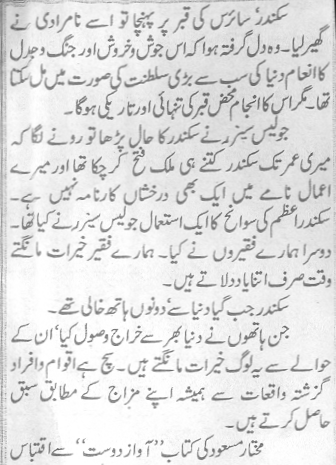 سکندر، سائرس کی قبر پر پہنچا تو اسے نامرادی نے
گھیر لیا۔ وہ دل گرفتہ ہوا کہ اس جوش و خروش اور جنگ و جدل
کا انعام دنیا کی سب سے بڑی سلطنت کی صورت میں مل سکتا
تھا۔ مگر اس کا انجام محض قبر کی تنہائی اور تاریکی ہوگا۔
جولیس سیزر نے سکندر کا حال پڑھا تو رونے لگا کہ
میری عمر تک سکندر کتنے ہی ملک فتح کر چکا تھا اور میرے
اعمال نامے میں ایک بھی درخشاں کارنامہ نہیں ہے۔
سکندر اعظم کی سوانح کا ایک استعمال جولیس سیزر نے کیا تھا۔
دوسرا ہمارے فقیروں نے کیا۔ ہمارے فقیر خیرات مانگتے
وقت صرف اتنا یاد دلاتے ہیں۔
سکندر جب گیا دنیا سے، دونوں ہاتھ خالی تھے۔
جن ہاتھوں نے دنیا بھر سے خراج وصول کیا، ان کے
حوالے سے یہ لوگ خیرات مانگتے ہیں۔ سچ ہے اقوام و افراد
گزشتہ واقعات سے ہمیشہ اپنے مزاج کے مطابق سبق
حاصل کرتے ہیں۔
مختار مسعود کی کتاب ”آواز دوست“ سے اقتباس